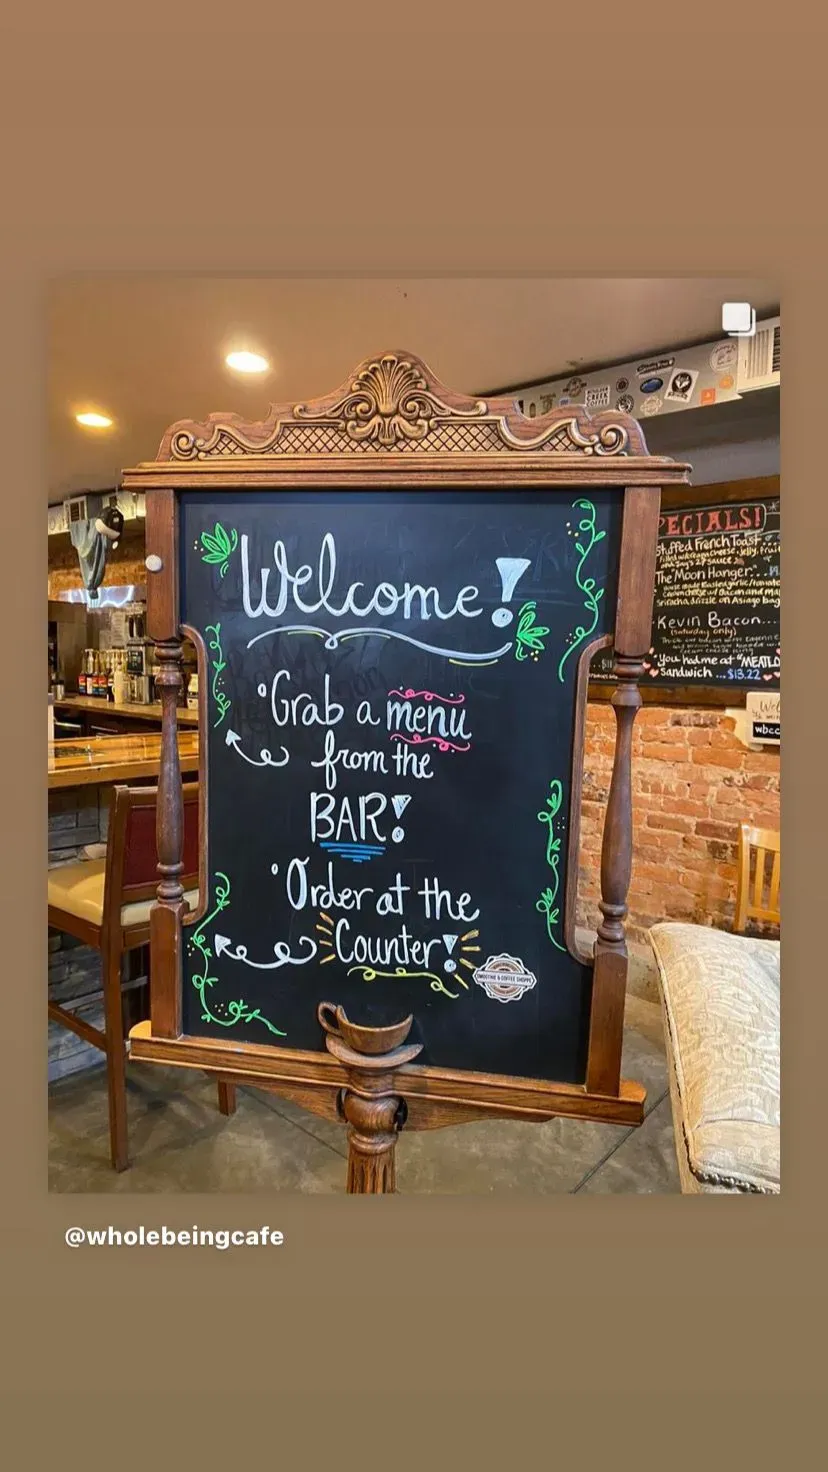 Welcome!
•Grab a menu
from the
BAR!
•Order at the
Counter!
SMOOTHIE & COFFEE SHOPPE
PECIALS!
Stuffed French Toast
The "Moon Hanger"
Sriracha, drizzle on Asiago bag
Kevin Bacon...
(Saturday only)
"You had me at "MEATLO
Sandwich ... $13.22
wbcc
@wholebeingcafe